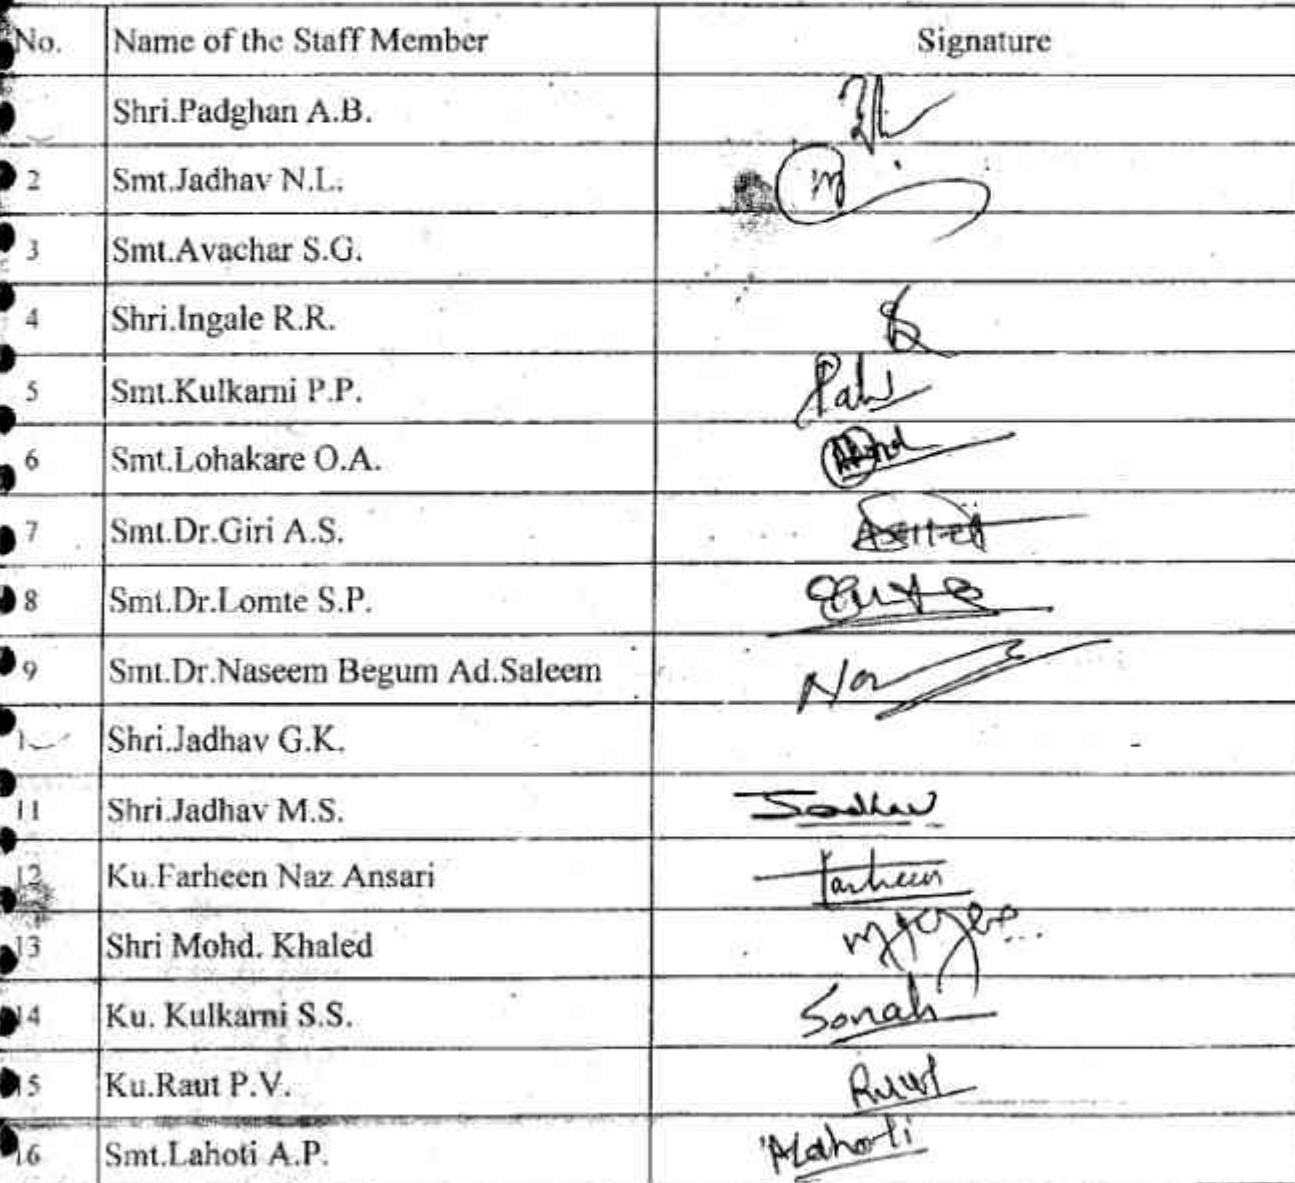 No. Name of the Staff Member Signature
Shri.Padghan A.B.
2 Smt.Jadhav N.L.
3 Smt.Avachar S.G.
4 Shri.Ingale R.R.
5 Smt.Kulkarni P.P.
6 Smt.Lohakare O.A.
7 Smt.Dr.Giri A.S.
8 Smt.Dr.Lomte S.P.
9 Smt.Dr.Naseem Begum Ad.Saleem
Shri.Jadhav G.K.
11 Shri.Jadhav M.S. Jadhav
12 Ku.Farheen Naz Ansari Farheen
13 Shri Mohd. Khaled
14 Ku. Kulkarni S.S. Sonah
15 Ku.Raut P.V.
16 Smt.Lahoti A.P. ALahoti